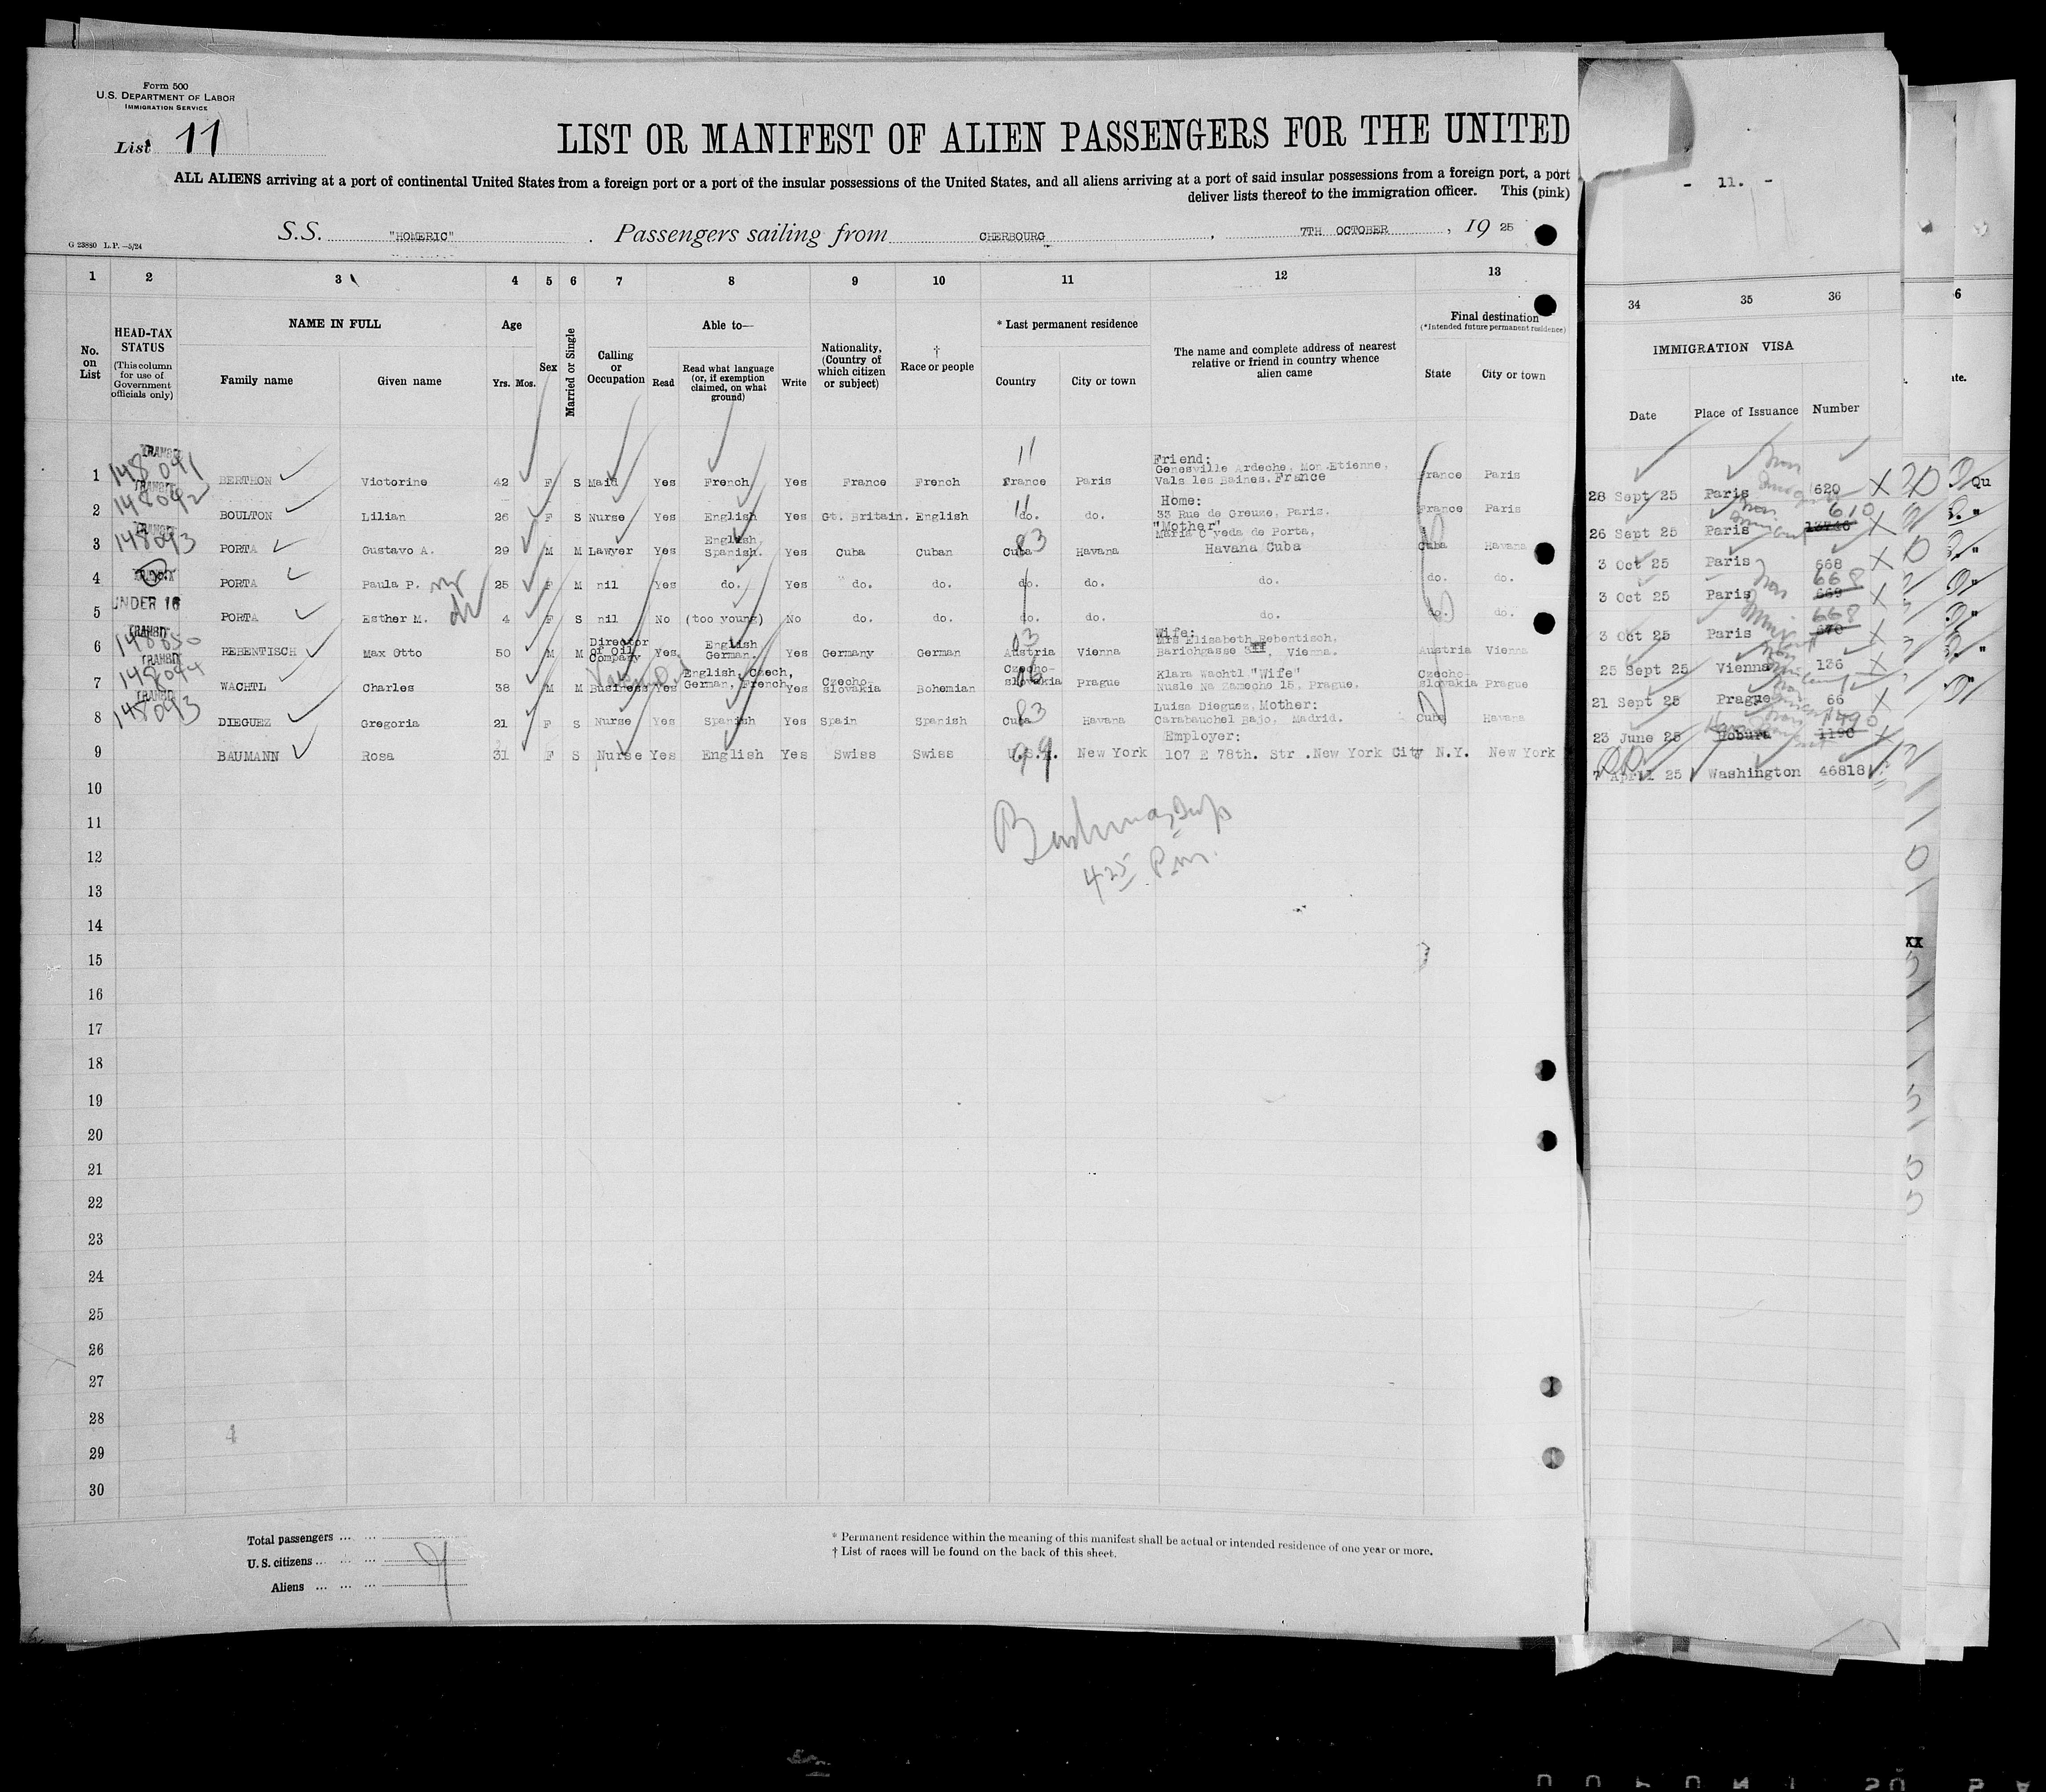 Form 500
U.S. DEPARTMENT OF LABOR
IMMIGRATION SERVICE
List 11
LIST OR MANIFEST OF ALIEN PASSENGERS FOR THE UNITED
ALL ALIENS arriving at a port of continental United States from a foreign port or a port of the insular possessions of the United States, and all aliens arriving at a port of said insular possessions from a foreign port, a port
deliver lists thereof to the immigration officer. This (pink)
G 23880 L.P.—5/24
S.S. "HOMERIC" . Passengers sailing from CHERBOURG , 7TH OCTOBER , 19 25
- 11. -
1 2 3 4 5 6 7 8 9 10 11 12 13 34 35 36
No. on List
HEAD-TAX STATUS (This column for use of Government officials only)
NAME IN FULL Family name Given name
Age Yrs. Mos.
Sex
Married or Single
Calling or Occupation
Able to— Read Read what language (or, if exemption claimed, on what ground) Write
Nationality, (Country of which citizen or subject)
† Race or people
* Last permanent residence Country City or town
The name and complete address of nearest relative or friend in country whence alien came
Final destination (*Intended future permanent residence) State City or town
IMMIGRATION VISA Date Place of Issuance Number
1 TRANSIT 148091 BERTHON Victorine 42 F S Maid Yes French Yes France French France 11 Paris Friend: Genesville Ardeche, Mon.Etienne, Vals les Baines. France France Paris 28 Sept 25 Paris 620
2 TRANSIT 148092 BOULTON Lilian 26 F S Nurse Yes English Yes Gt. Britain. English do. 11 do. Home: 33 Rue de Greuze, Paris. France Paris 26 Sept 25 Paris 13746 610
3 TRANSIT 148093 PORTA Gustavo A. 29 M M Lawyer Yes English, Spanish. Yes Cuba Cuban Cuba 83 Havana "Mother" Maria O'veda de Porta, Havana Cuba Cuba Havana 3 Oct 25 Paris 668
4 TRANSIT PORTA Paula P. 25 F M nil Yes do. Yes do. do. do. do. do. do. do. 3 Oct 25 Paris 669 668
5 UNDER 16 PORTA Esther M. 4 F S nil No (too young) No do. do. do. do. do. do. do. 3 Oct 25 Paris 670 668
6 TRANSIT 148050 REBENTISCH Max Otto 50 M M Director of Oil Company Yes English German. Yes Germany German Austria 03 Vienna Wife: Mrs Elisabeth Rebentisch, Barichgasse, Vienna. Austria Vienna 25 Sept 25 Vienna 136
7 TRANSIT 148094 WACHTL Charles 38 M M Business Yes English, Czech, German, French Yes Czecho-slovakia Bohemian Czecho-slovakia 06 Prague Klara Wachtl "Wife" Nusle Na Zamecho 15, Prague. Czecho-slovakia Prague 21 Sept 25 Prague 66
8 TRANSIT 148093 DIEGUEZ Gregoria 21 F S Nurse Yes Spanish Yes Spain Spanish Cuba 83 Havana Luisa Dieguez, Mother: Carabauchel Bajo, Madrid. Cuba Havana 23 June 25 1190 1490
9 BAUMANN Rosa 31 F S Nurse Yes English Yes Swiss Swiss U.S.A. 99 New York Employer: 107 E 78th. Str .New York City N.Y. New York 7 April 25 Washington 46818
10
11
12
425 Pm.
13
14
15
16
17
18
19
20
21
22
23
24
25
26
27
28
29
30
Total passengers ... ...
U.S. citizens ... ... ...
Aliens ... ... ...
9
* Permanent residence within the meaning of this manifest shall be actual or intended residence of one year or more.
† List of races will be found on the back of this sheet.